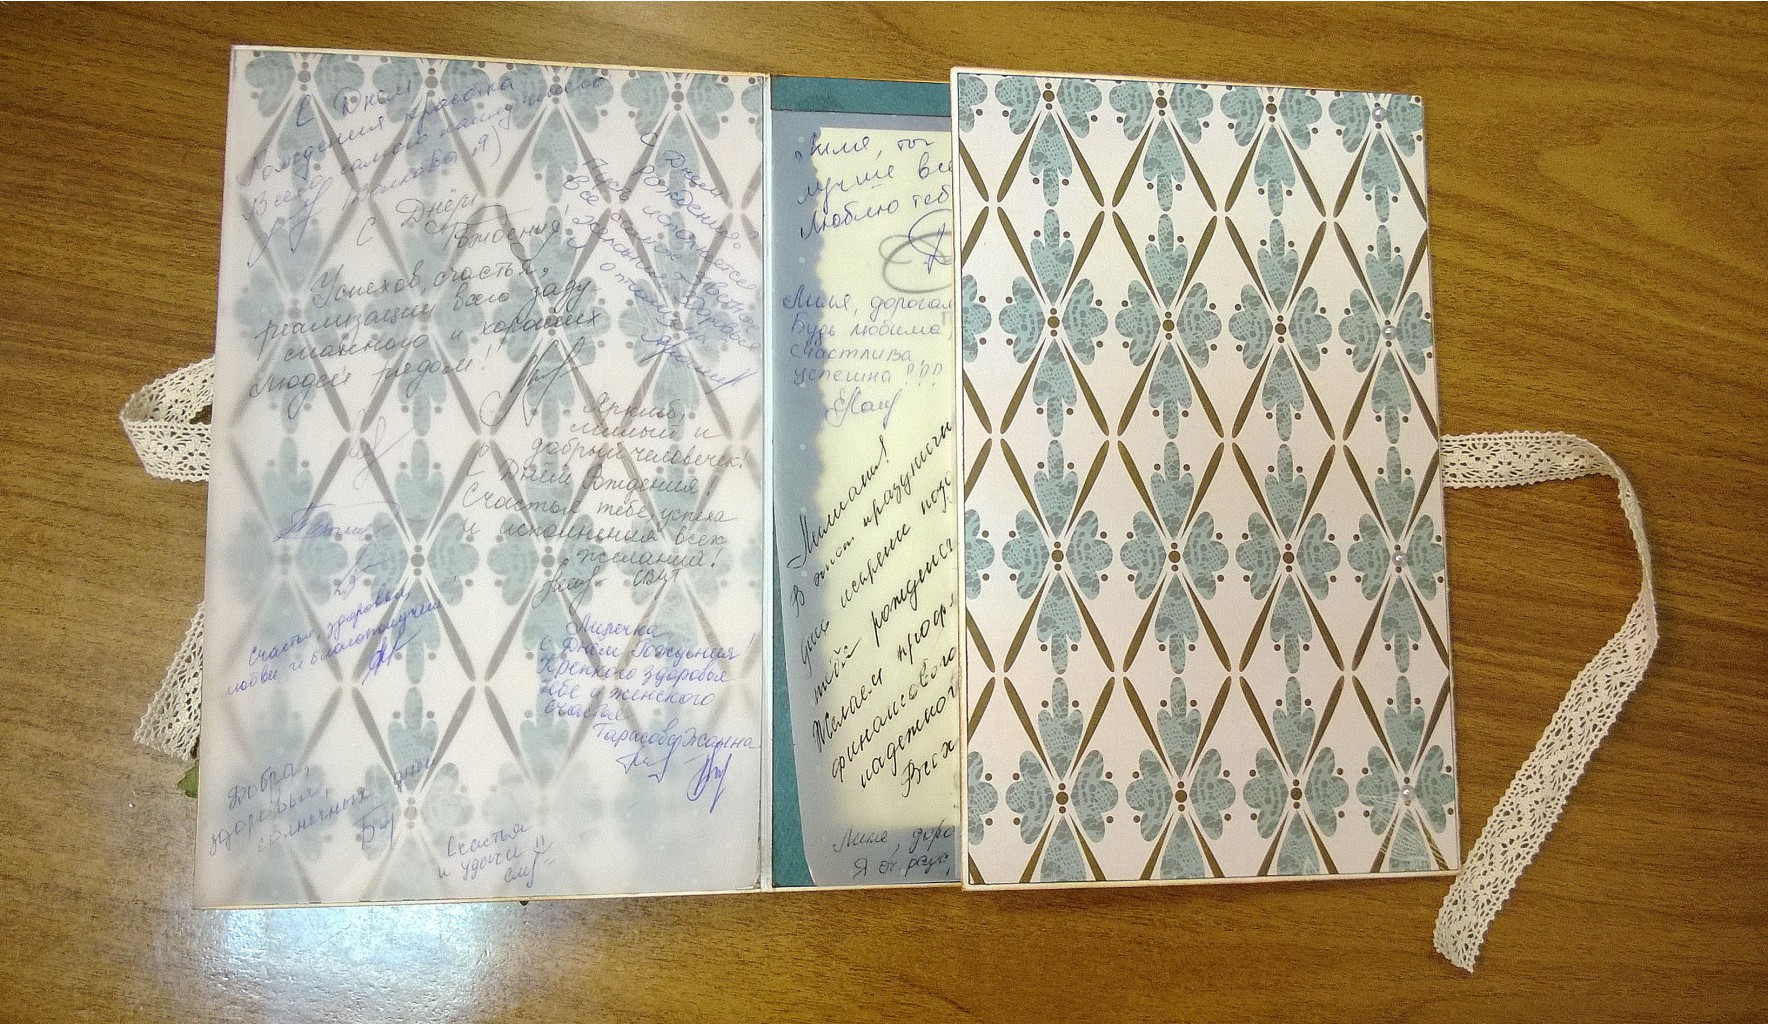 С Днем
Рождения красотка
Всего самого наилучшего
С Днём
Рождения!
Успехов, счастья,
реализации всего заду
манного и хороших
людей рядом!
С Днем
рождения!
Пусть исполнится
все самое главное
Яркий,
милый и
добрый человечек!
С
Днём Рождения!
Счастья тебе, успеха
и исполнения всех
желаний!
Счастья, здоровья,
любви и благополучия!
Лилечка
С Днем Рождения!
Крепкого здоровья
тебе и женского
счастья
Тарасова Жанна
Добра,
здоровья,
солнечных дней
Счастья
и удачи!!
Лиля, ты
лучше все
Люблю теб
Лиля, дорогая
Будь любима,
счастлива,
успешна!!!
Лилиана!
В этот праздничн
день искренне позд
тебя рождени
Желаем профе
финансового
надежно
Всех
Лиля, доро
Я оч. рада,